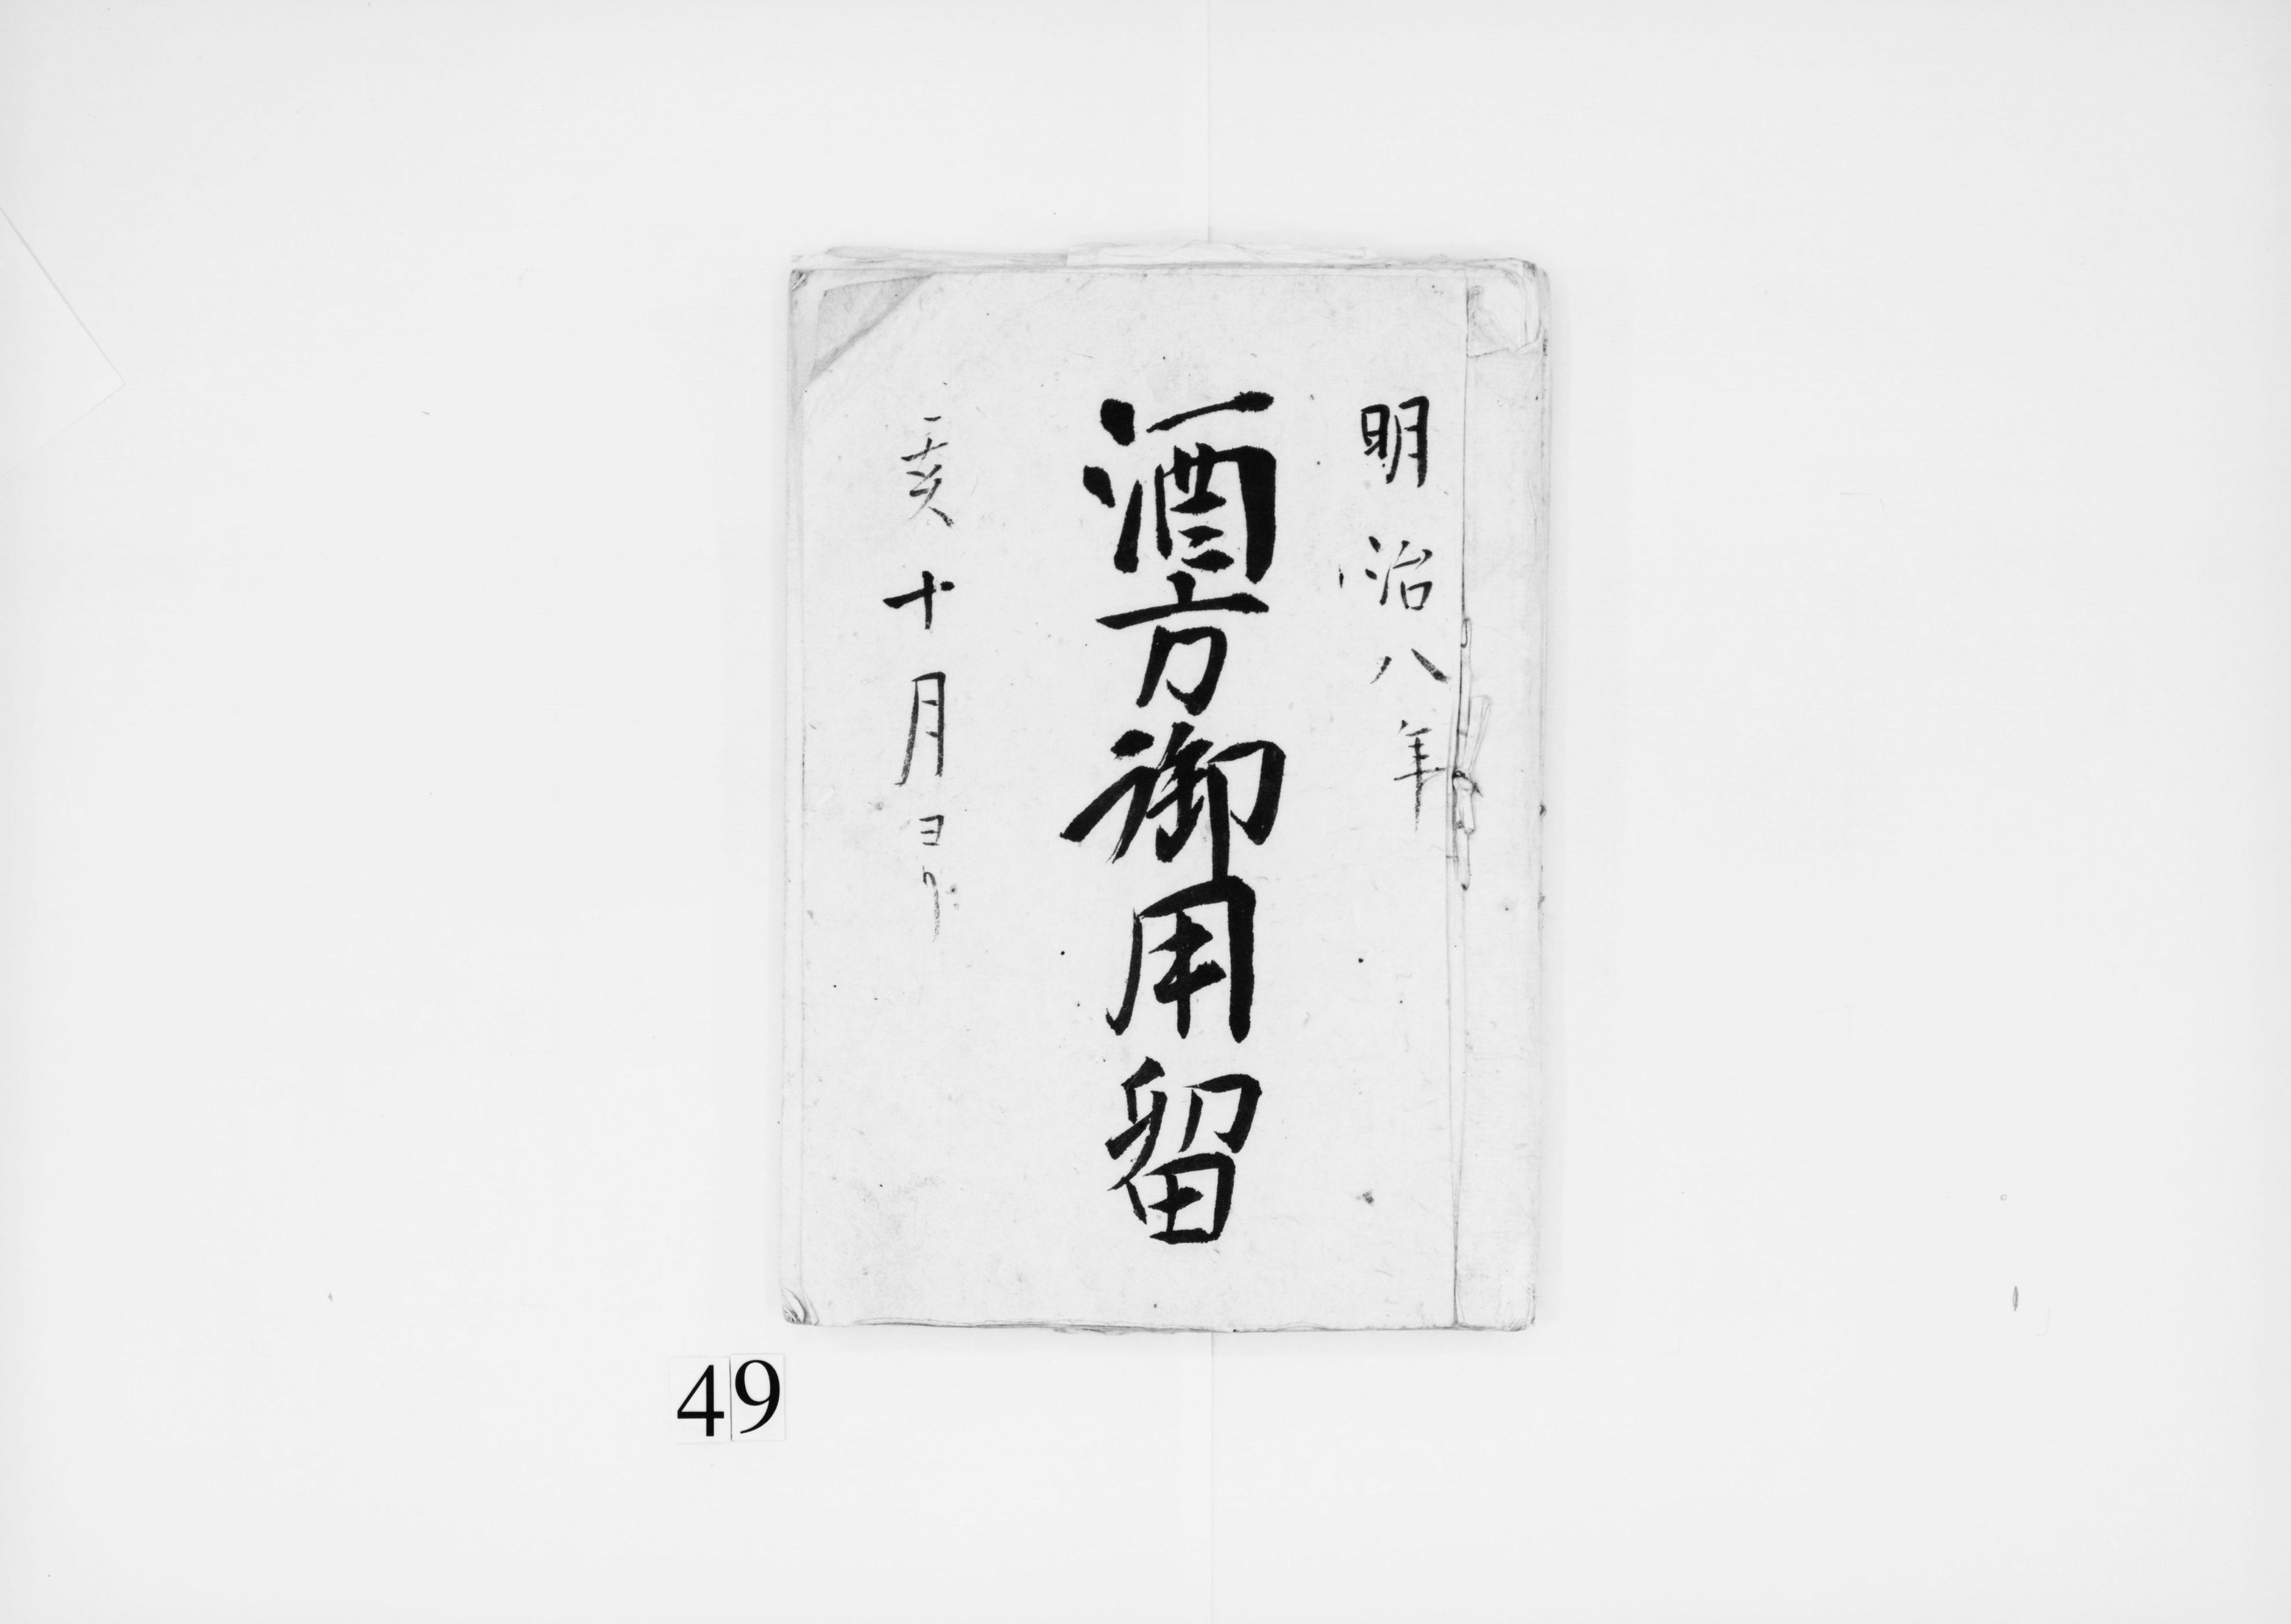 明治八年
酒方御用留
亥十月ヨリ
49